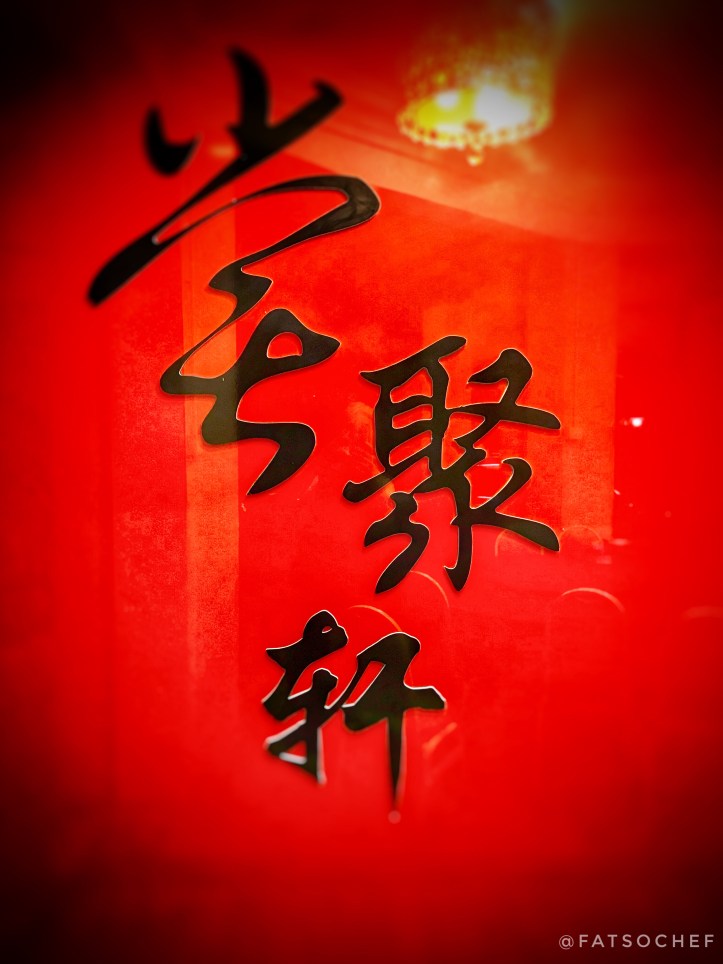 常聚轩
@FATSOCHEF